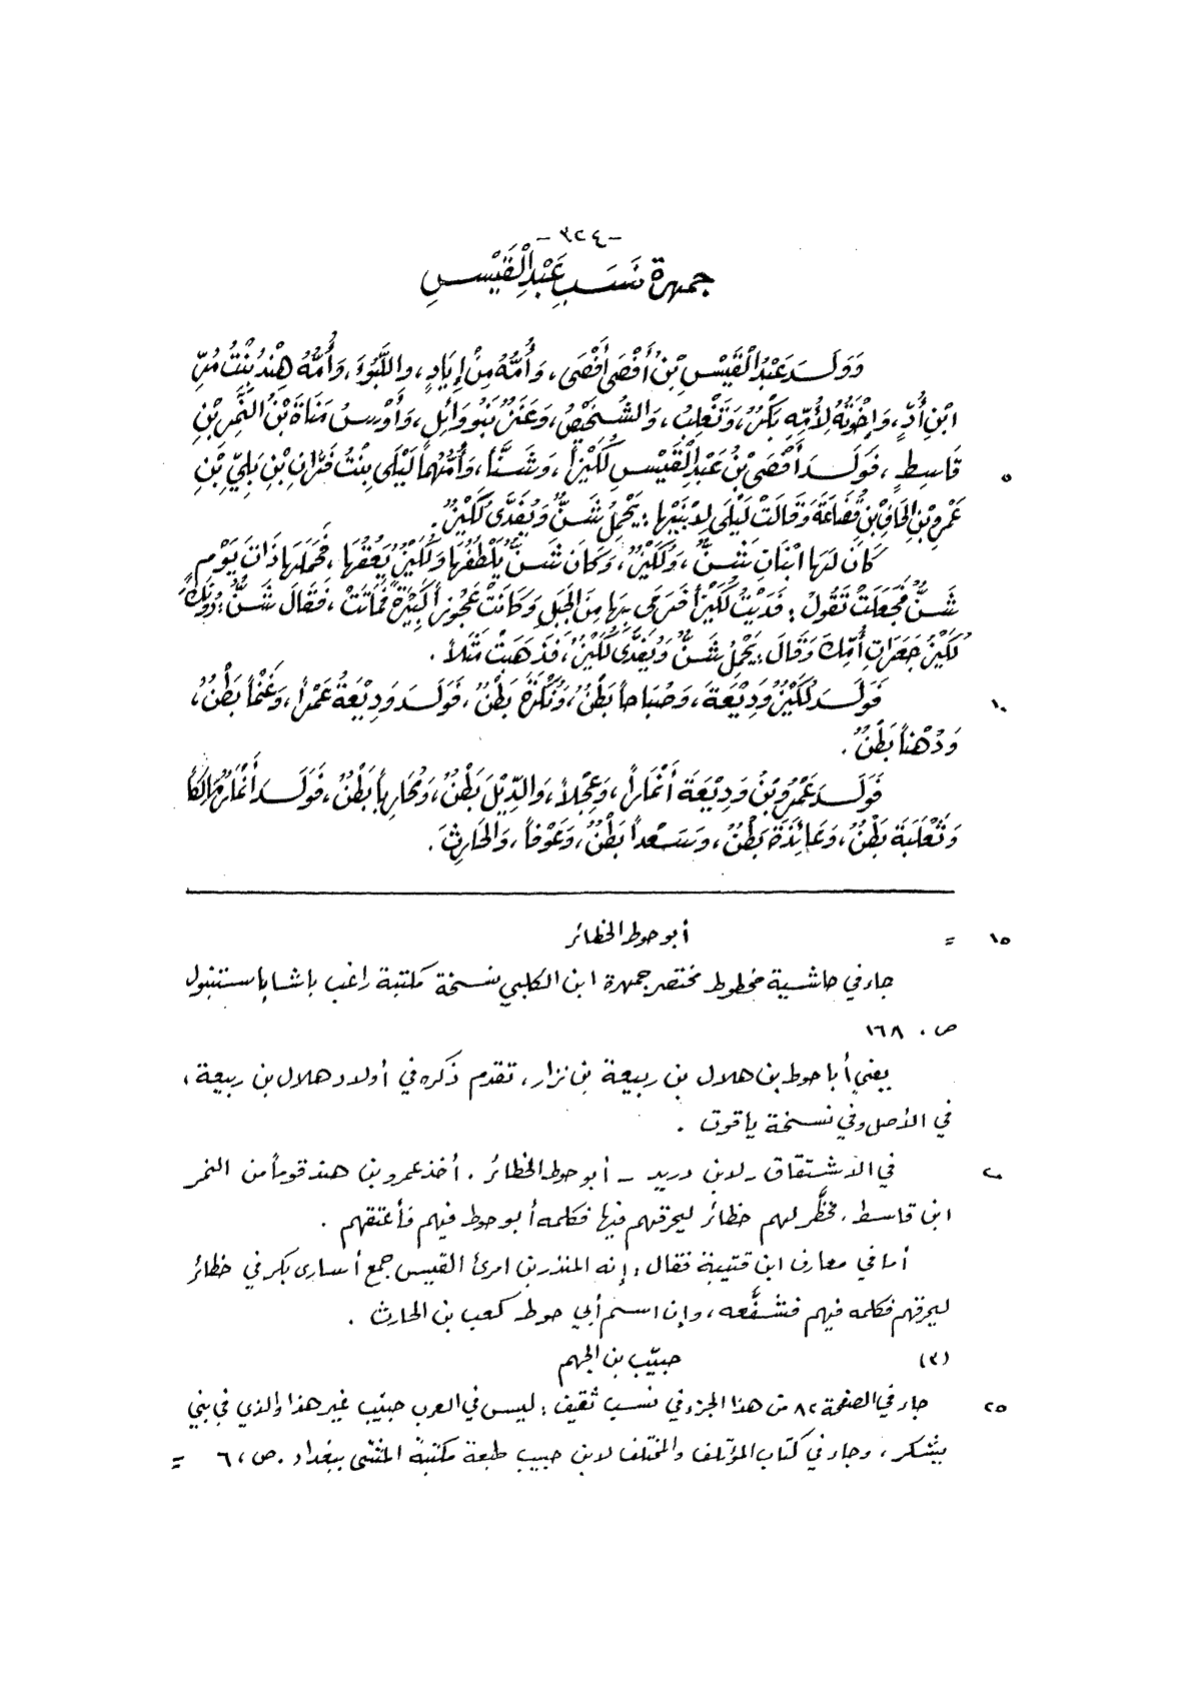 -٣٢٤-
جمهرة نَسَبِ عَبْدِ الْقَيْسِ
وَوَلَدَ عَبْدُ الْقَيْسِ بْنُ أَفْصَى أَفْصَى، وَأُمُّهُ مِنْ إِيَادٍ، واللَّبُوءَ، وَأُمُّهُ هِنْدُ بِنْتُ مُرِّ
ابْنِ أُدٍّ، وَإِخْوَتُهُ لِأُمِّهِ بَكْرٌ، وَتَغْلِبُ، وَالشُّخَيْصُ، وَعَنَزُ بَنُو وَائِلٍ، وَأَوْسُ مَنَاةَ بْنُ النَّمِرِ بْنِ
٥ قَاسِطٍ، فَوَلَدَ أَفْصَى بْنُ عَبْدِ الْقَيْسِ لُكَيْزاً، وَشَنّاً، وَأُمُّهُمَا لَيْلَى بِنْتُ فَرَّانِ بْنِ بَلِيِّ بْنِ
عَمْرِو بْنِ الْحَافِ بْنِ قُضَاعَةَ وَقَالَتْ لَيْلَى لِابْنَيْهَا: يَحْمِلُ شَنٌّ وَيُفَدَّى لُكَيْزٌ.
كَانَ لَهَا ابْنَانِ شَنٌّ، وَلُكَيْزٌ، وَكَانَ شَنٌّ يَلْطُفُهَا وَلُكَيْزٌ يَعُقُّهَا، فَحَمَلَهَا ذَاتَ يَوْمٍ
شَنٌّ فَجَعَلَتْ تَقُولُ: فَدَيْتُ لُكَيْزاً فَرَمَى بِهَا مِنَ الْجَبَلِ وَكَانَتْ عَجُوزاً كَبِيْرَةً فَمَاتَتْ، فَقَالَ شَنٌّ: دُوْنَكَ
لُكَيْزُ جَعَرَاتِ أُمِّكَ وَقَالَ: يَحْمِلُ شَنٌّ وَيُفَدَّى لُكَيْزٌ، فَذَهَبَتْ مَثَلاً.
١٠ فَوَلَدَ لُكَيْزٌ وَدِيْعَةَ، وَصُبَاحاً بَطْنٌ، وَنُكْرَةَ بَطْنٌ، فَوَلَدَ وَدِيْعَةُ عَمْراً، وَغَنْماً بَطْنٌ،
وَدُهْناً بَطْنٌ.
فَوَلَدَ عَمْرُو بْنُ وَدِيْعَةَ أَنْمَاراً، وَعِجْلاً، وَالدِّيْلَ بَطْنٌ، وَمُحَارِباً بَطْنٌ، فَوَلَدَ أَنْمَارٌ مَالِكاً
وَثَعْلَبَةَ بَطْنٌ، وَعَائِذَةَ بَطْنٌ، وَسَعْداً بَطْنٌ، وَعَوْفاً، وَالْحَارِثَ.
١٥ = أبو حوط الحظائر
جاء في حاشية مخطوط مختصر جمهرة ابن الكلبي نسخة مكتبة راغب باشا باستنبول
ص. ١٦٨
يعني أبا حوط بن هلال بن ربيعة بن نزار، تقدم ذكره في أولاد هلال بن ربيعة،
في الأصل وفي نسخة ياقوت.
٢٠ في الاشتقاق - لابن دريد - أبو حوط الحظائر. أخذ عمرو بن هند قوماً من النمر
ابن قاسط، فحظَّر لهم حظائر ليحرقهم فيها فكلمه أبو حوط فيهم فأعتقهم.
أما في معارف ابن قتيبة فقال: إنه المنذر بن امرئ القيس جمع أسارى بكر في حظائر
ليحرقهم فكلمه فيهم فشفَّعه، وإن اسم أبي حوط كعب بن الحارث.
(٣) حبيّب بن الجهم
٢٥ جاء في الصفحة ٨٢ من هذا الجزء في نسب ثقيف: ليس في العرب حبيّب غير هذا والذي في بني
يشكر، وجاء في كتاب المؤتلف والمختلف لابن حبيب طبعة مكتبة المثنى ببغداد. ص، ٦ =